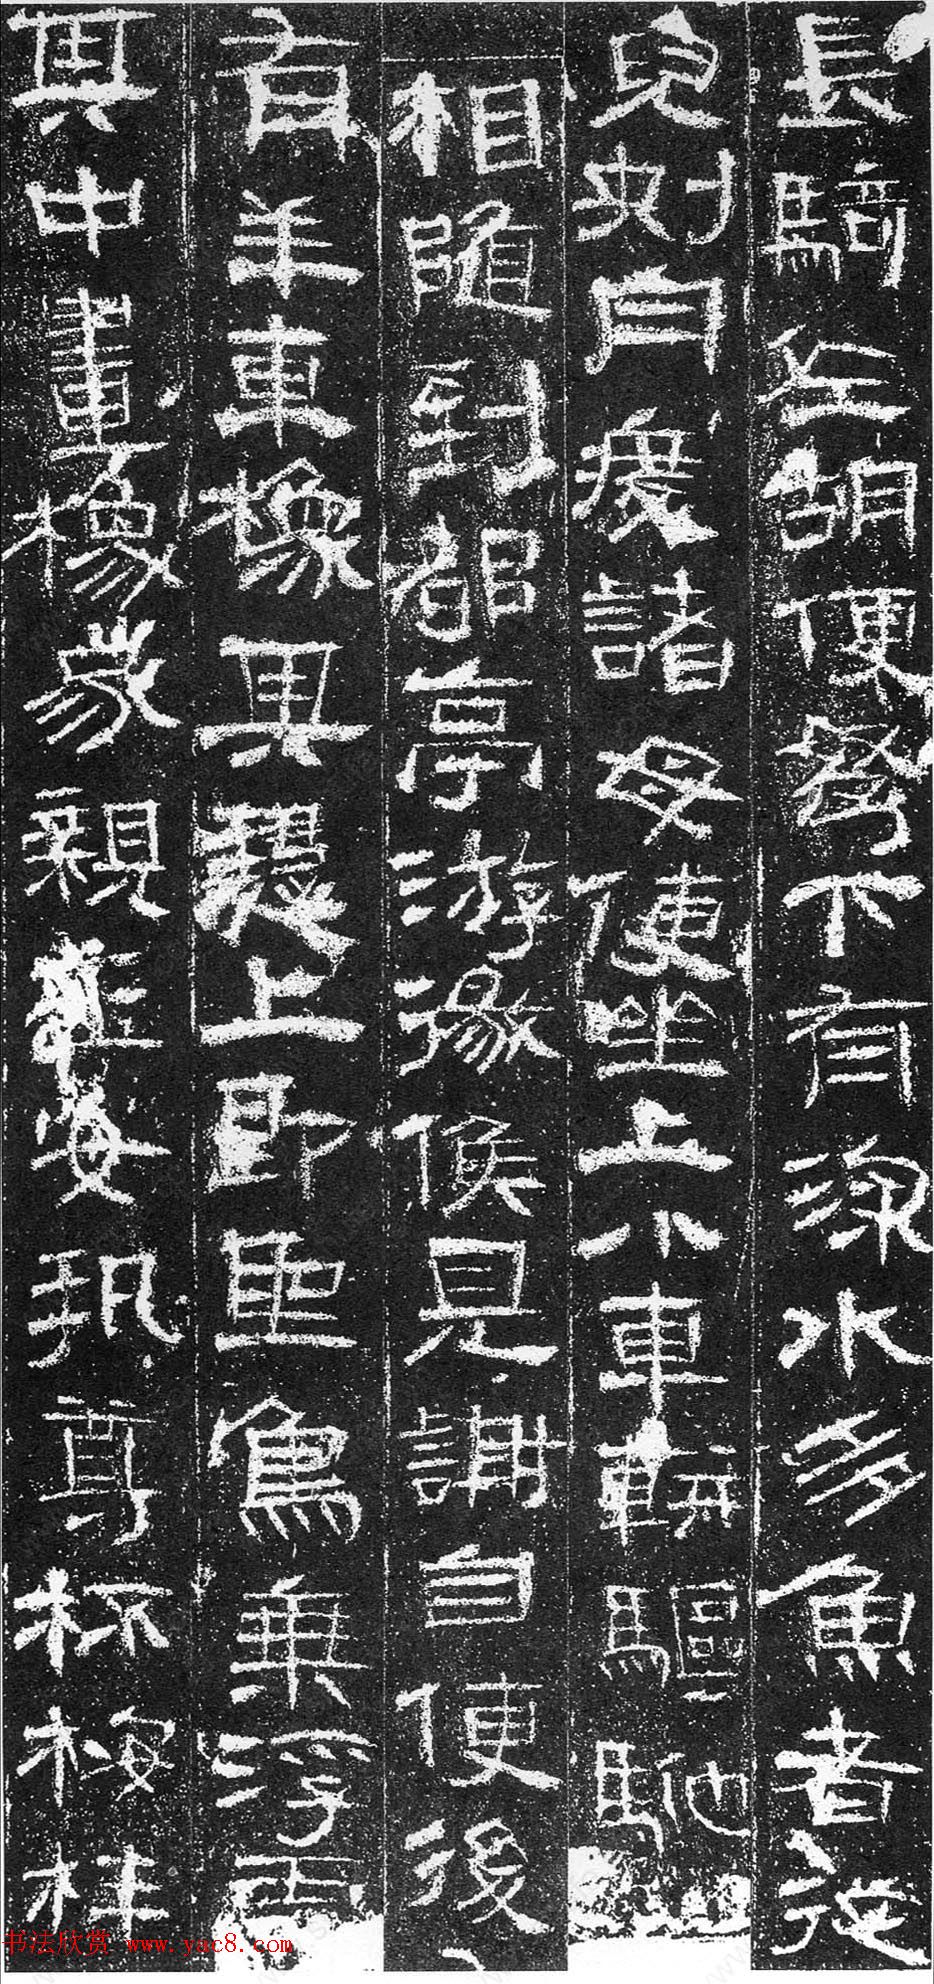 長騎佐胡便弩下有深水多魚者從
兒刺舟度諸母使坐上小車軿驅馳
相隨到都亭游徼候見謝自便後
有羊車橡其槥上即聖鳥乘浮雲
其中畫橡家親玉女執尊杯桉柈
书法欣赏 www.yac8.com